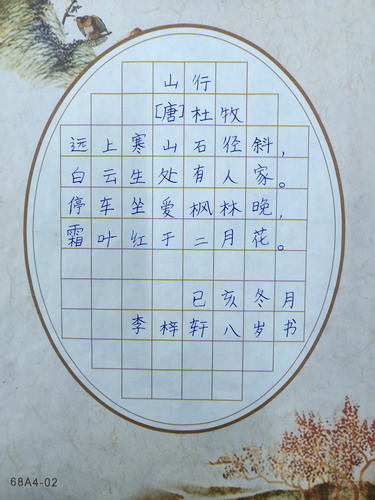 山行
[唐]杜牧
远上寒山石径斜，
白云生处有人家。
停车坐爱枫林晚，
霜叶红于二月花。
己亥冬月
李梓轩八岁书
68A4-02